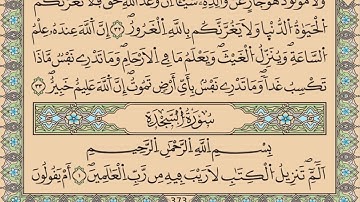 وَلَا مَوْلُودٌ هُوَ جَازٍ عَنْ وَالِدِهِ شَيْئًا إِنَّ وَعْدَ اللَّهِ حَقٌّ فَلَا تَغُرَّنَّكُمُ
الْحَيَوٰةُ الدُّنْيَا وَلَا يَغُرَّنَّكُم بِاللَّهِ الْغَرُورُ ٣٣ إِنَّ اللَّهَ عِندَهُ عِلْمُ
السَّاعَةِ وَيُنَزِّلُ الْغَيْثَ وَيَعْلَمُ مَا فِي الْأَرْحَامِ وَمَا تَدْرِي نَفْسٌ مَّاذَا
تَكْسِبُ غَدًا وَمَا تَدْرِي نَفْسٌ بِأَيِّ أَرْضٍ تَمُوتُ إِنَّ اللَّهَ عَلِيمٌ خَبِيرٌ ٣٤
سُورَةُ السَّجْدَةِ
بِسْمِ اللَّهِ الرَّحْمَٰنِ الرَّحِيمِ
الٓمٓ تَنزِيلُ الْكِتَابِ لَا رَيْبَ فِيهِ مِن رَّبِّ الْعَالَمِينَ أَمْ يَقُولُونَ
373